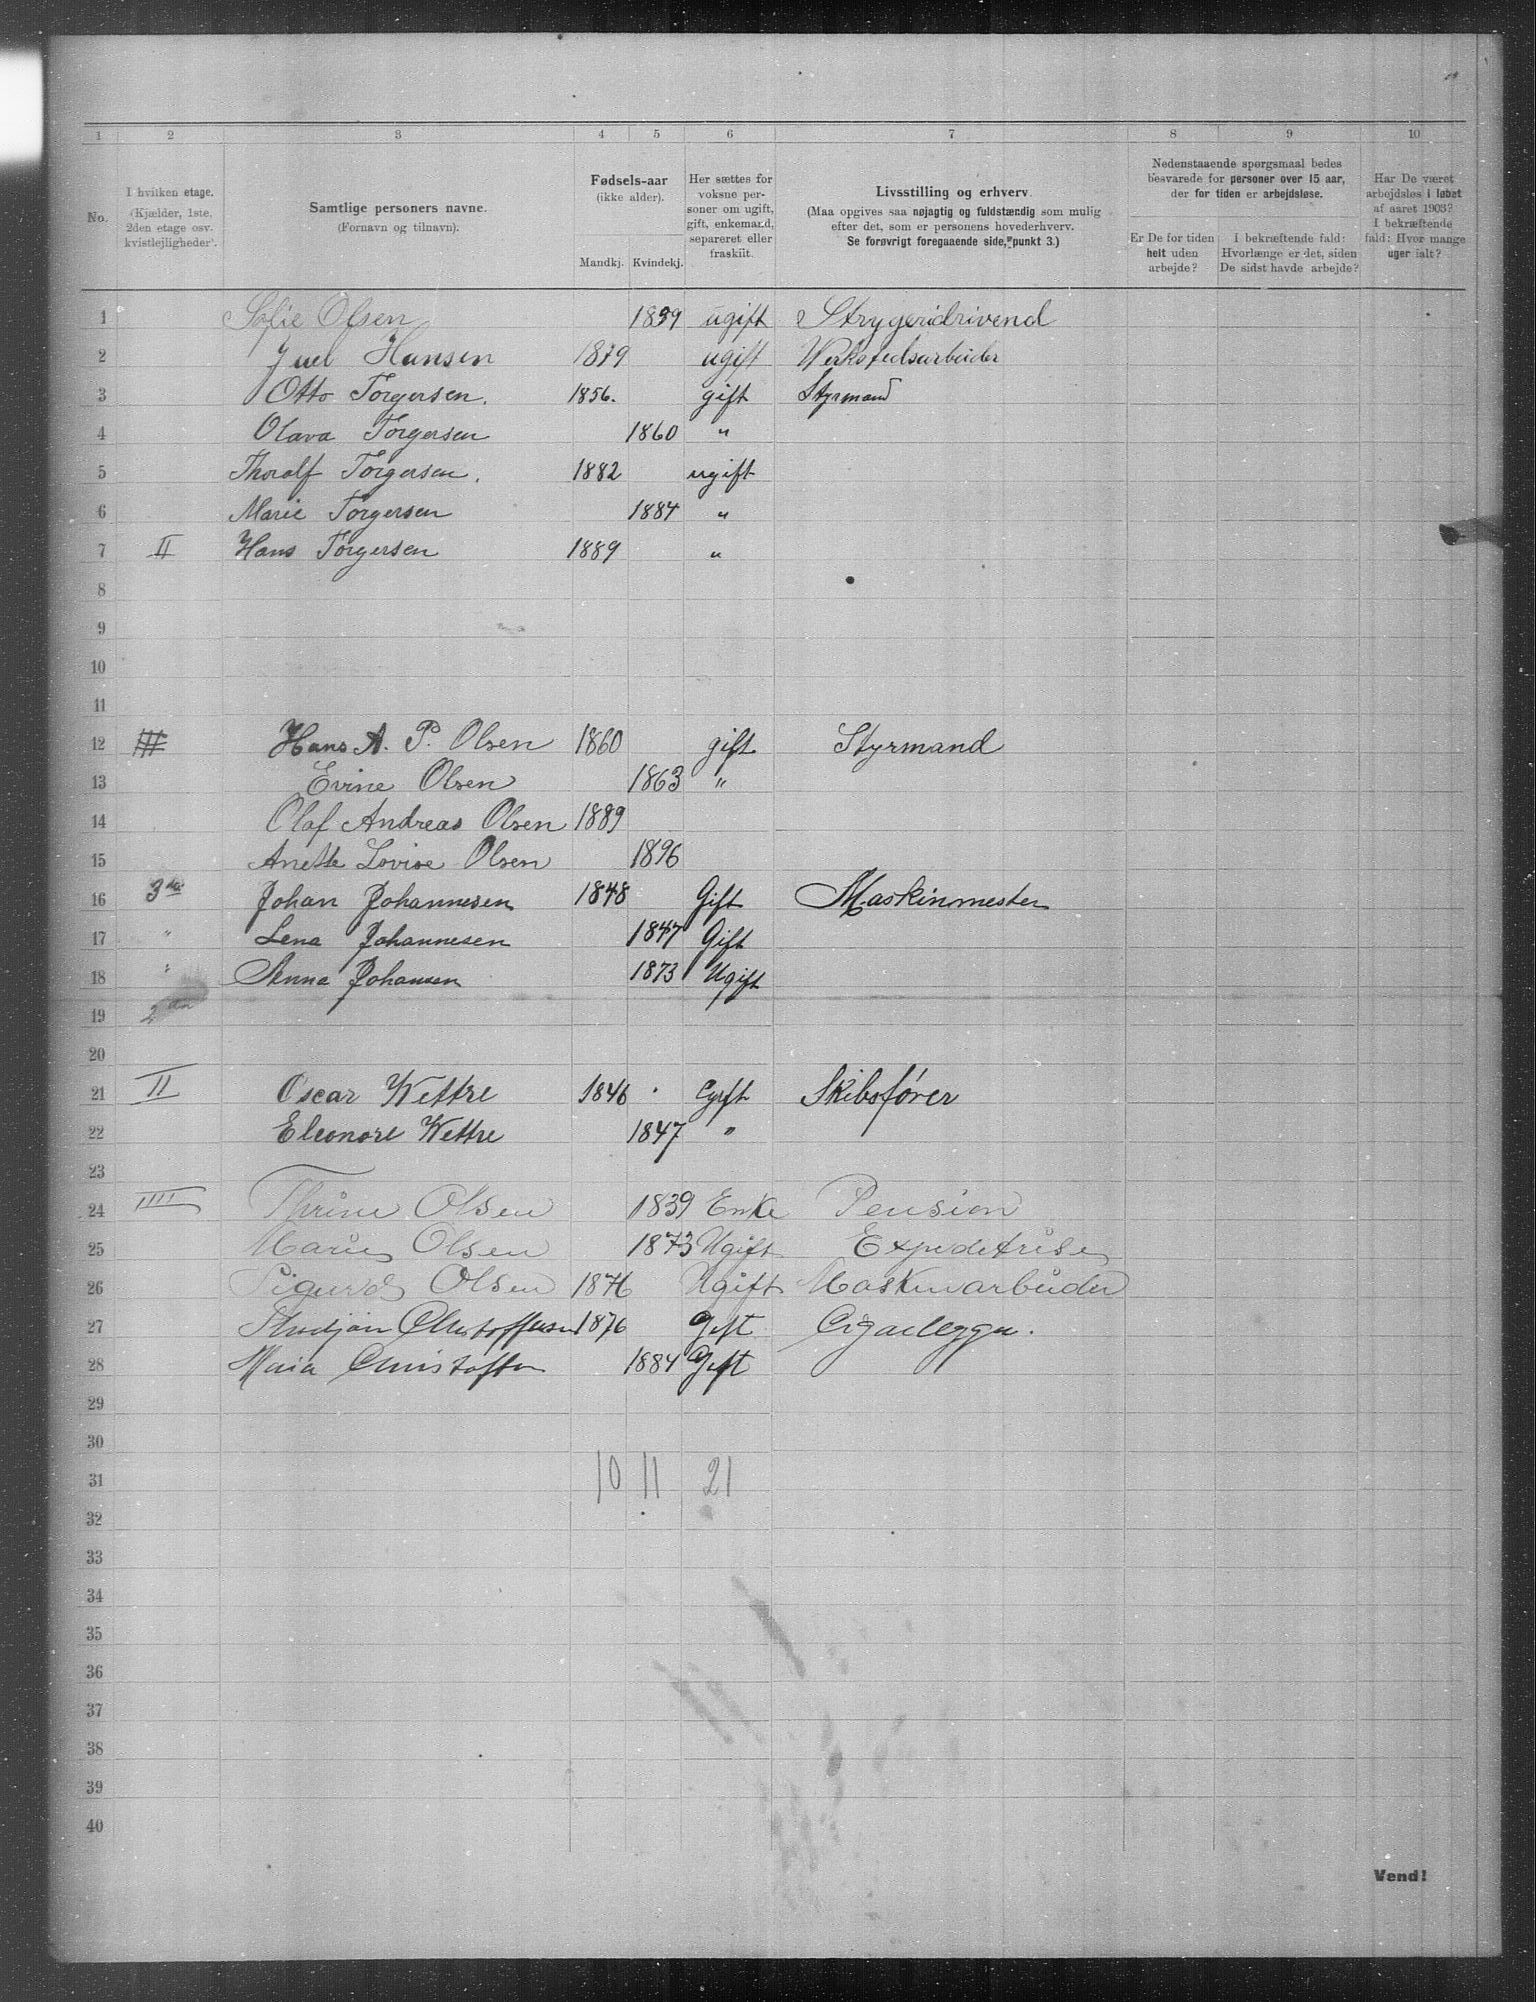 1 2 3 4 5 6 7 8 9 10
No.
I hvilken etage.
(Kjælder, 1ste,
2den etage osv.
kvistlejligheder).
Samtlige personers navne.
(Fornavn og tilnavn).
Fødsels-aar
(ikke alder).
Mandkj. Kvindekj.
Her sættes for
voksne per-
soner om ugift,
gift, enkemand,
separeret eller
fraskilt.
Livsstilling og erhverv.
(Maa opgives saa nøjagtig og fuldstændig som mulig
efter det, som er personens hovederhverv.
Se forøvrigt foregaaende side, punkt 3.)
Nedenstaaende spørgsmaal bedes
besvarede for personer over 15 aar,
der for tiden er arbejdsløse.
Er De for tiden
helt uden
arbejde?
I bekræftende fald:
Hvorlænge er det, siden
De sidst havde arbejde?
Har De været
arbejdsløs i løbet
af aaret 1903?
I bekræftende
fald: Hvor mange
uger ialt?
1 Sofie Olsen 1839 ugift Strygeridrivend
2 Juel Hansen 1879 ugift Verkstedsarbeider
3 Otto Torgersen. 1856. gift Styrmand
4 Olava Torgersen 1860 "
5 Thoralf Torgersen. 1882 ugift
6 Marie Torgersen 1884 "
7 II Hans Torgersen 1889 "
8
9
10
11
12 Hans A. P. Olsen 1860 gift Styrmand
13 Evine Olsen 1863 "
14 Olaf Andreas Olsen 1889
15 Anette Lovise Olsen 1896
16 3die Johan Johannesen 1848 Gift Maskinmester
17 " Lena Johannesen 1847 Gift
18 " Anna Johansen 1873 Ugift
19 2den
20
21 II Oscar Wettre 1846 Gift Skibsfører
22 Eleonore Wettre 1847 "
23
24 IIII Thrine Olsen 1839 Enke Pension
25 Marie Olsen 1873 Ugift Expeditrise
26 Sigurd Olsen 1876 Ugift Maskinarbeider
27 1876 Gift
28 Maia Christoffen 1884 Gift
29
30
31 10 11 21
32
33
34
35
36
37
38
39
40
Vend!